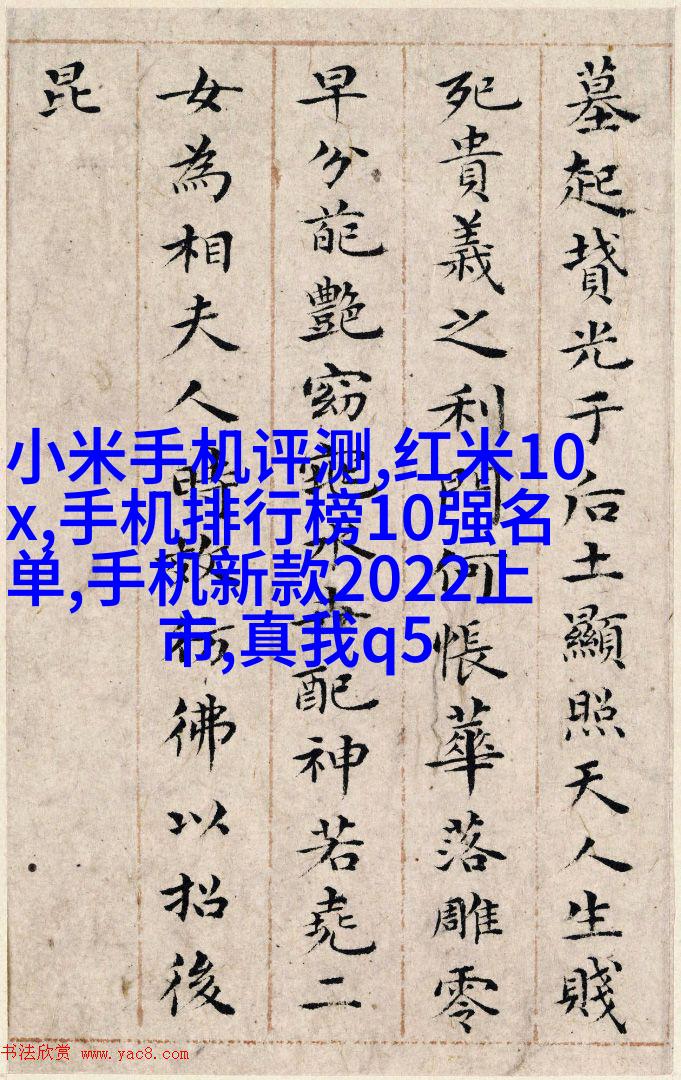 墓起墳光于后土顯照天人生賤
死貴義之利門何悵華落雕零
早分葩艷窈窕永世配神若堯二
女為相夫人時效彷彿以招後
昆
小米手机评测,红米10
x,手机排行榜10强名
单,手机新款2022上
市,真我q5
书法欣赏 www.yac8.com